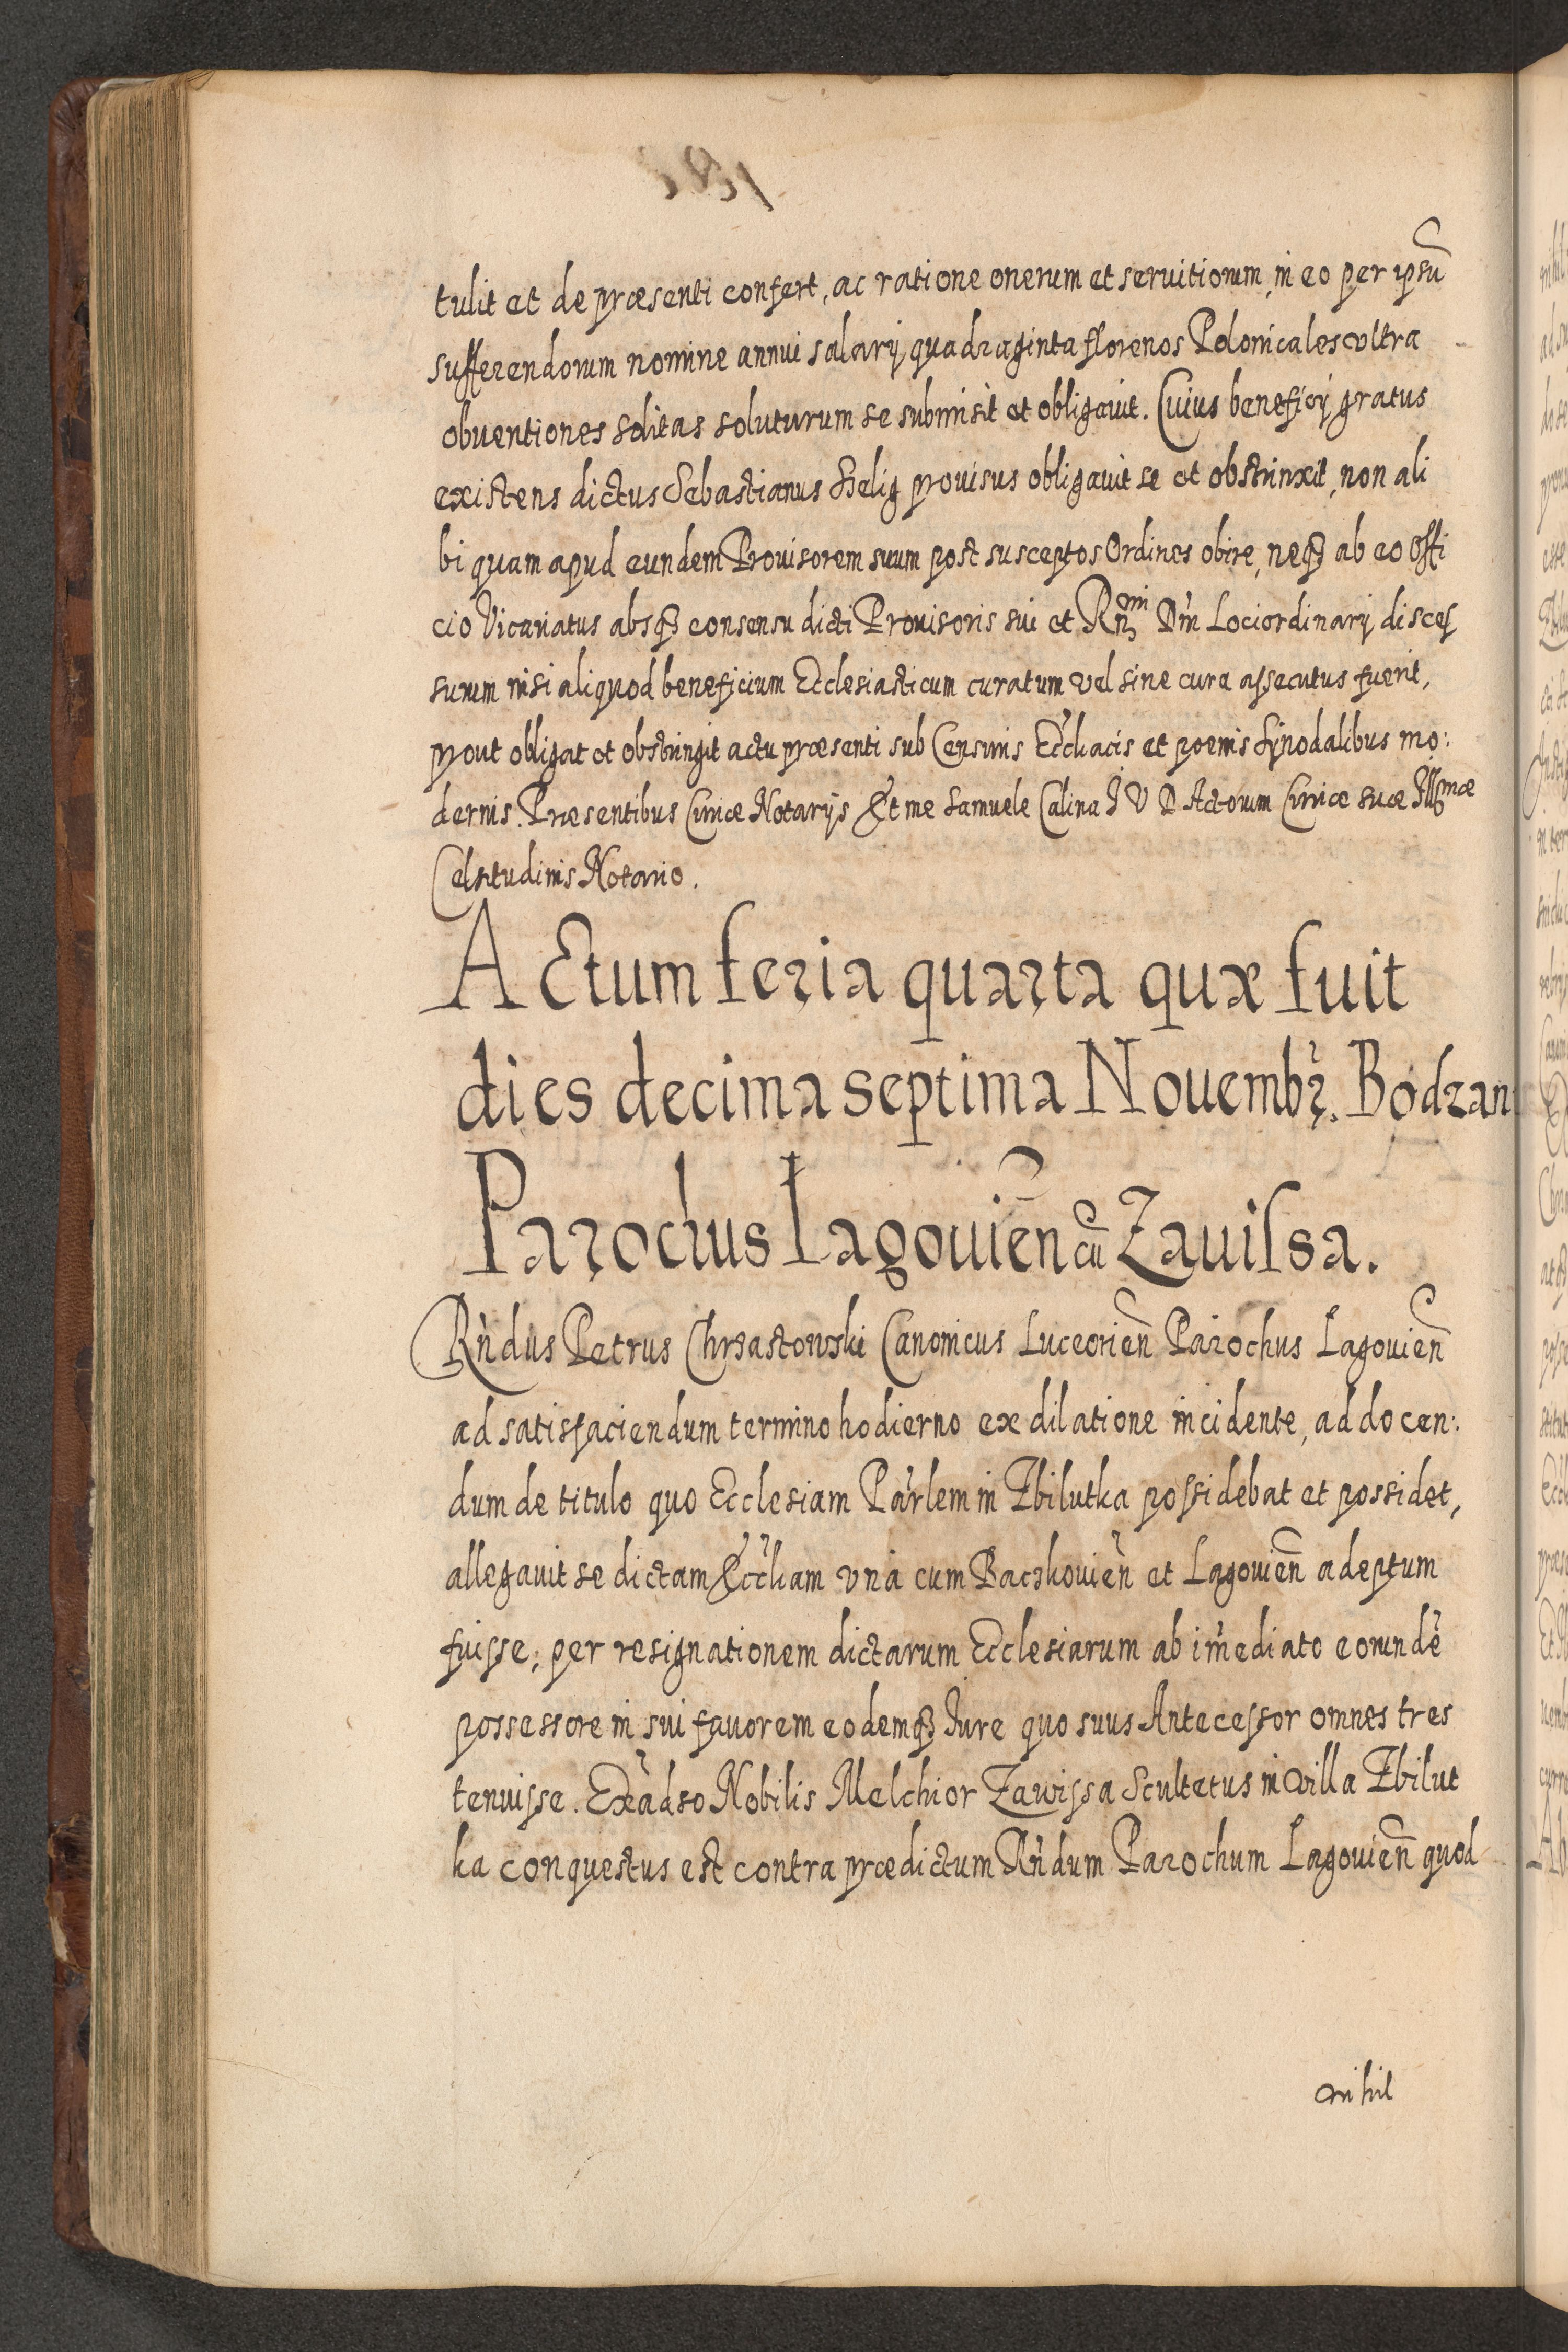 tulit et de præsenti confert, ac ratione onerum et seruitiorum, in eo per ipsũ
sufferendorum nomine annui salarij quadraginta florenos Polonicales vltra
obuentiones solitas soluturum se submisit et obligauit. Cuius beneficij gratus
existens dictus Sebastianus Helig prouisus obligauit se et obstrinxit, non ali
bi quam apud eundem Prouisorem suum post susceptos Ordines obire, neqȝ ab eo Offi
cio Vicariatus absqȝ consensu dicti Prouisoris sui et Rñmi Dñi Lociordinarij disces
surum nisi aliquod beneficium Ecclesiasticum curatum vel sine cura assecutus fuerit,
prout obligat et obstringit actu præsenti sub Censuris Ecc̃liacis et poenis Synodalibus mo:
dernis. Præsentibus Curiæ Notarijs Et me Samuele Calina I V D Actorum Curiæ suæ Illmæ
Celsitudinis Notario.
Actum feria quarta quæ fuit
dies decima septima Nouembr̃. Bodzan
Parochus Lagouieñ cũ Zauissa.
Rñdus Petrus Chrzastowski Canonicus Luceorieñ Parochus Lagouieñ
ad satisfaciendum termino hodierno ex dilatione incidente, ad docen:
dum de titulo quo Ecclesiam Par̃lem in Zbilutka possidebat et possidet,
allegauit se dictam Ecc̃liam vna cum Baczkouieñ et Lagouieñ adeptum
fuisse; per resignationem dictarum Ecclesiarum ab im̃ediato eorundẽ
possessore in sui fauorem eodemqȝ Iure quo suus Antecessor omnes tres
tenuisse. Exaduo Nobilis Melchior Zawissa Scultetus in villa Zbilut
ka conquestus est contra prædictum Rñdum Parochum Lagouieñ quod
nihil